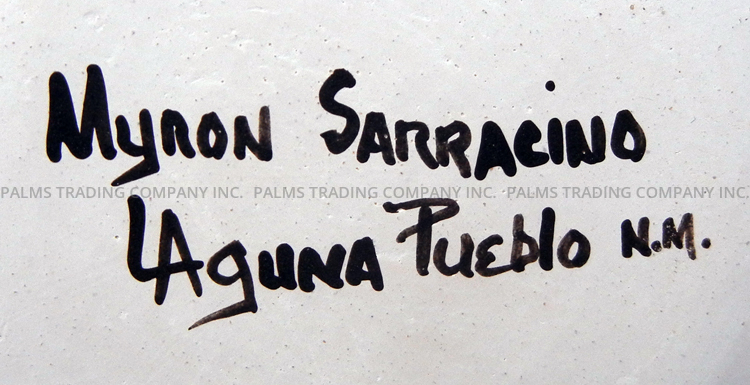 Myron Sarracino
PALMS TRADING COMPANY INC. PALMS TRADING COMPANY INC. PALMS TRADING COMPANY INC.
Laguna Pueblo N.M.